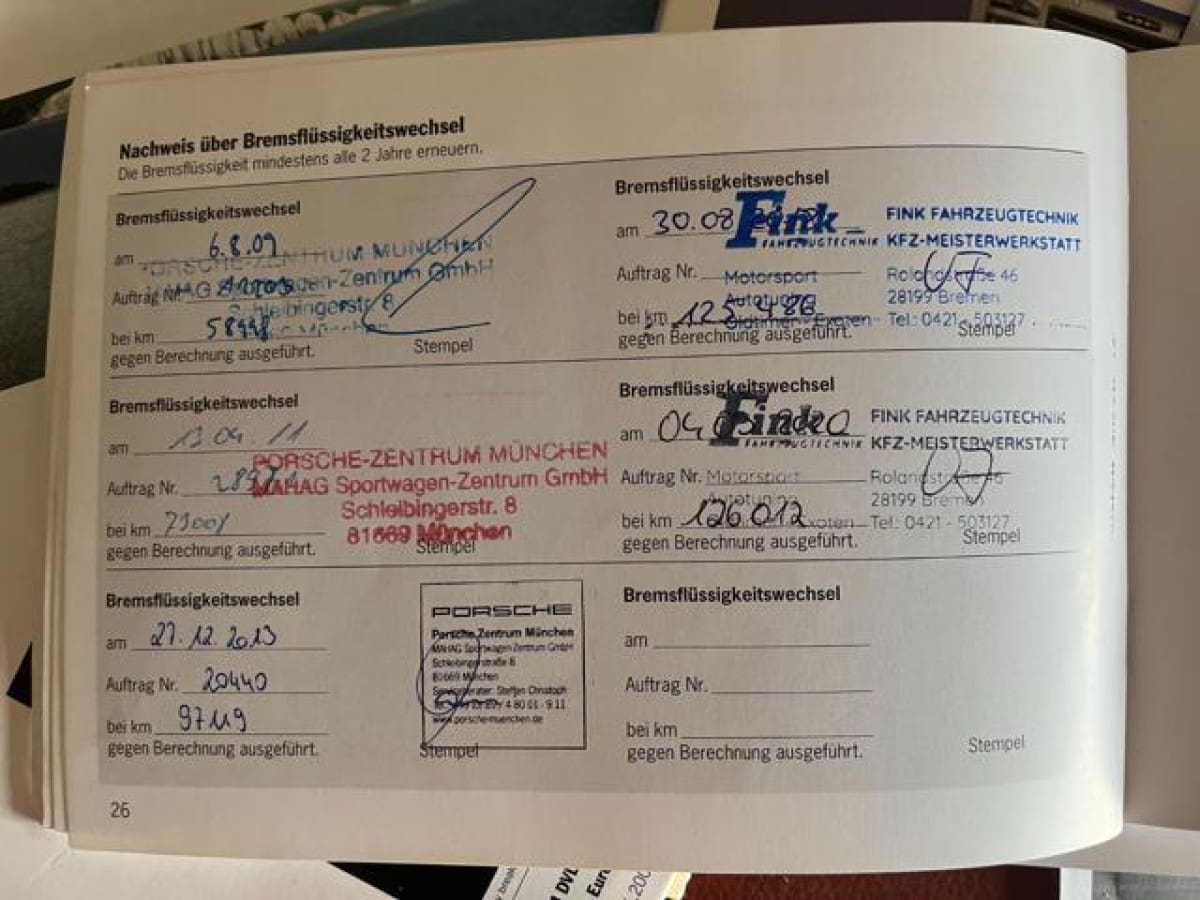 Nachweis über Bremsflüssigkeitswechsel
Die Bremsflüssigkeit mindestens alle 2 Jahre erneuern.
Bremsflüssigkeitswechsel
am 6.8.09
PORSCHE-ZENTRUM MÜNCHEN
Auftrag Nr.
MAHAG Sportwagen-Zentrum GmbH
Schleibingerstr. 8
bei km 58998
München
gegen Berechnung ausgeführt.
Stempel
Bremsflüssigkeitswechsel
am 13.04.11
PORSCHE-ZENTRUM MÜNCHEN
Auftrag Nr.
MAHAG Sportwagen-Zentrum GmbH
Schleibingerstr. 8
bei km 79001
81669 München
gegen Berechnung ausgeführt.
Stempel
Bremsflüssigkeitswechsel
am 27.12.2013
Auftrag Nr. 20440
bei km 97119
gegen Berechnung ausgeführt.
PORSCHE
Porsche Zentrum München
MAHAG Sportwagen Zentrum GmbH
Schleibingerstraße 8
81669 München
Serviceberater: Steffen Christoph
4 80 01 - 9 11
www.porsche-muenchen.de
Stempel
26
Bremsflüssigkeitswechsel
am 30.08
Fink
FAHRZEUGTECHNIK
FINK FAHRZEUGTECHNIK
KFZ-MEISTERWERKSTATT
Auftrag Nr.
Motorsport
Autotuning
Oldtimer - Exoten
Rolandstraße 46
28199 Bremen
Tel.: 0421 - 503127
bei km 125.986
gegen Berechnung ausgeführt.
Stempel
Bremsflüssigkeitswechsel
am 04 2020
Fink
FAHRZEUGTECHNIK
FINK FAHRZEUGTECHNIK
KFZ-MEISTERWERKSTATT
Auftrag Nr.
Motorsport
Autotuning
Exoten
Rolandstraße 46
28199 Bremen
Tel.: 0421 - 503127
bei km 126012
gegen Berechnung ausgeführt.
Stempel
Bremsflüssigkeitswechsel
am
Auftrag Nr.
bei km
gegen Berechnung ausgeführt.
Stempel